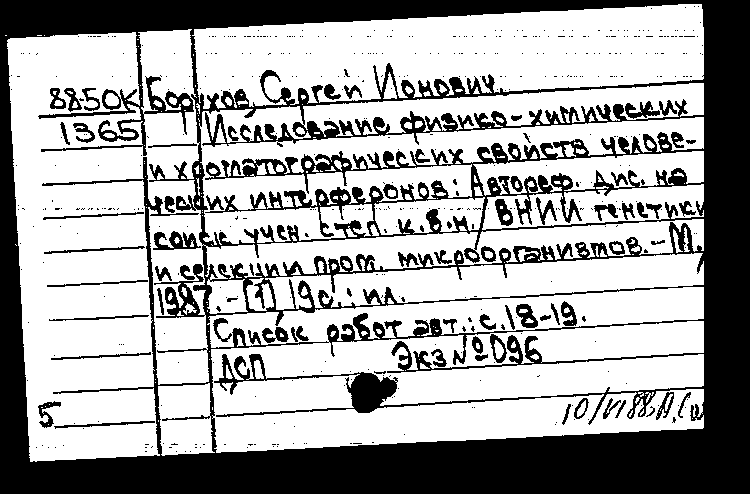 8850К Борухов, Сергей Ионович.
1365 Исследование физико-химических
и хроматографических свойств челове-
ческих интерферонов: Автореф. дис. на
соиск. учен. степ. к.б.н./ ВНИИ генетики
и селекции пром. микроорганизмов.-М.,
1987.-[1], 19с.: ил.
Список работ авт.: с.18-19.
ДСП Экз №096
5